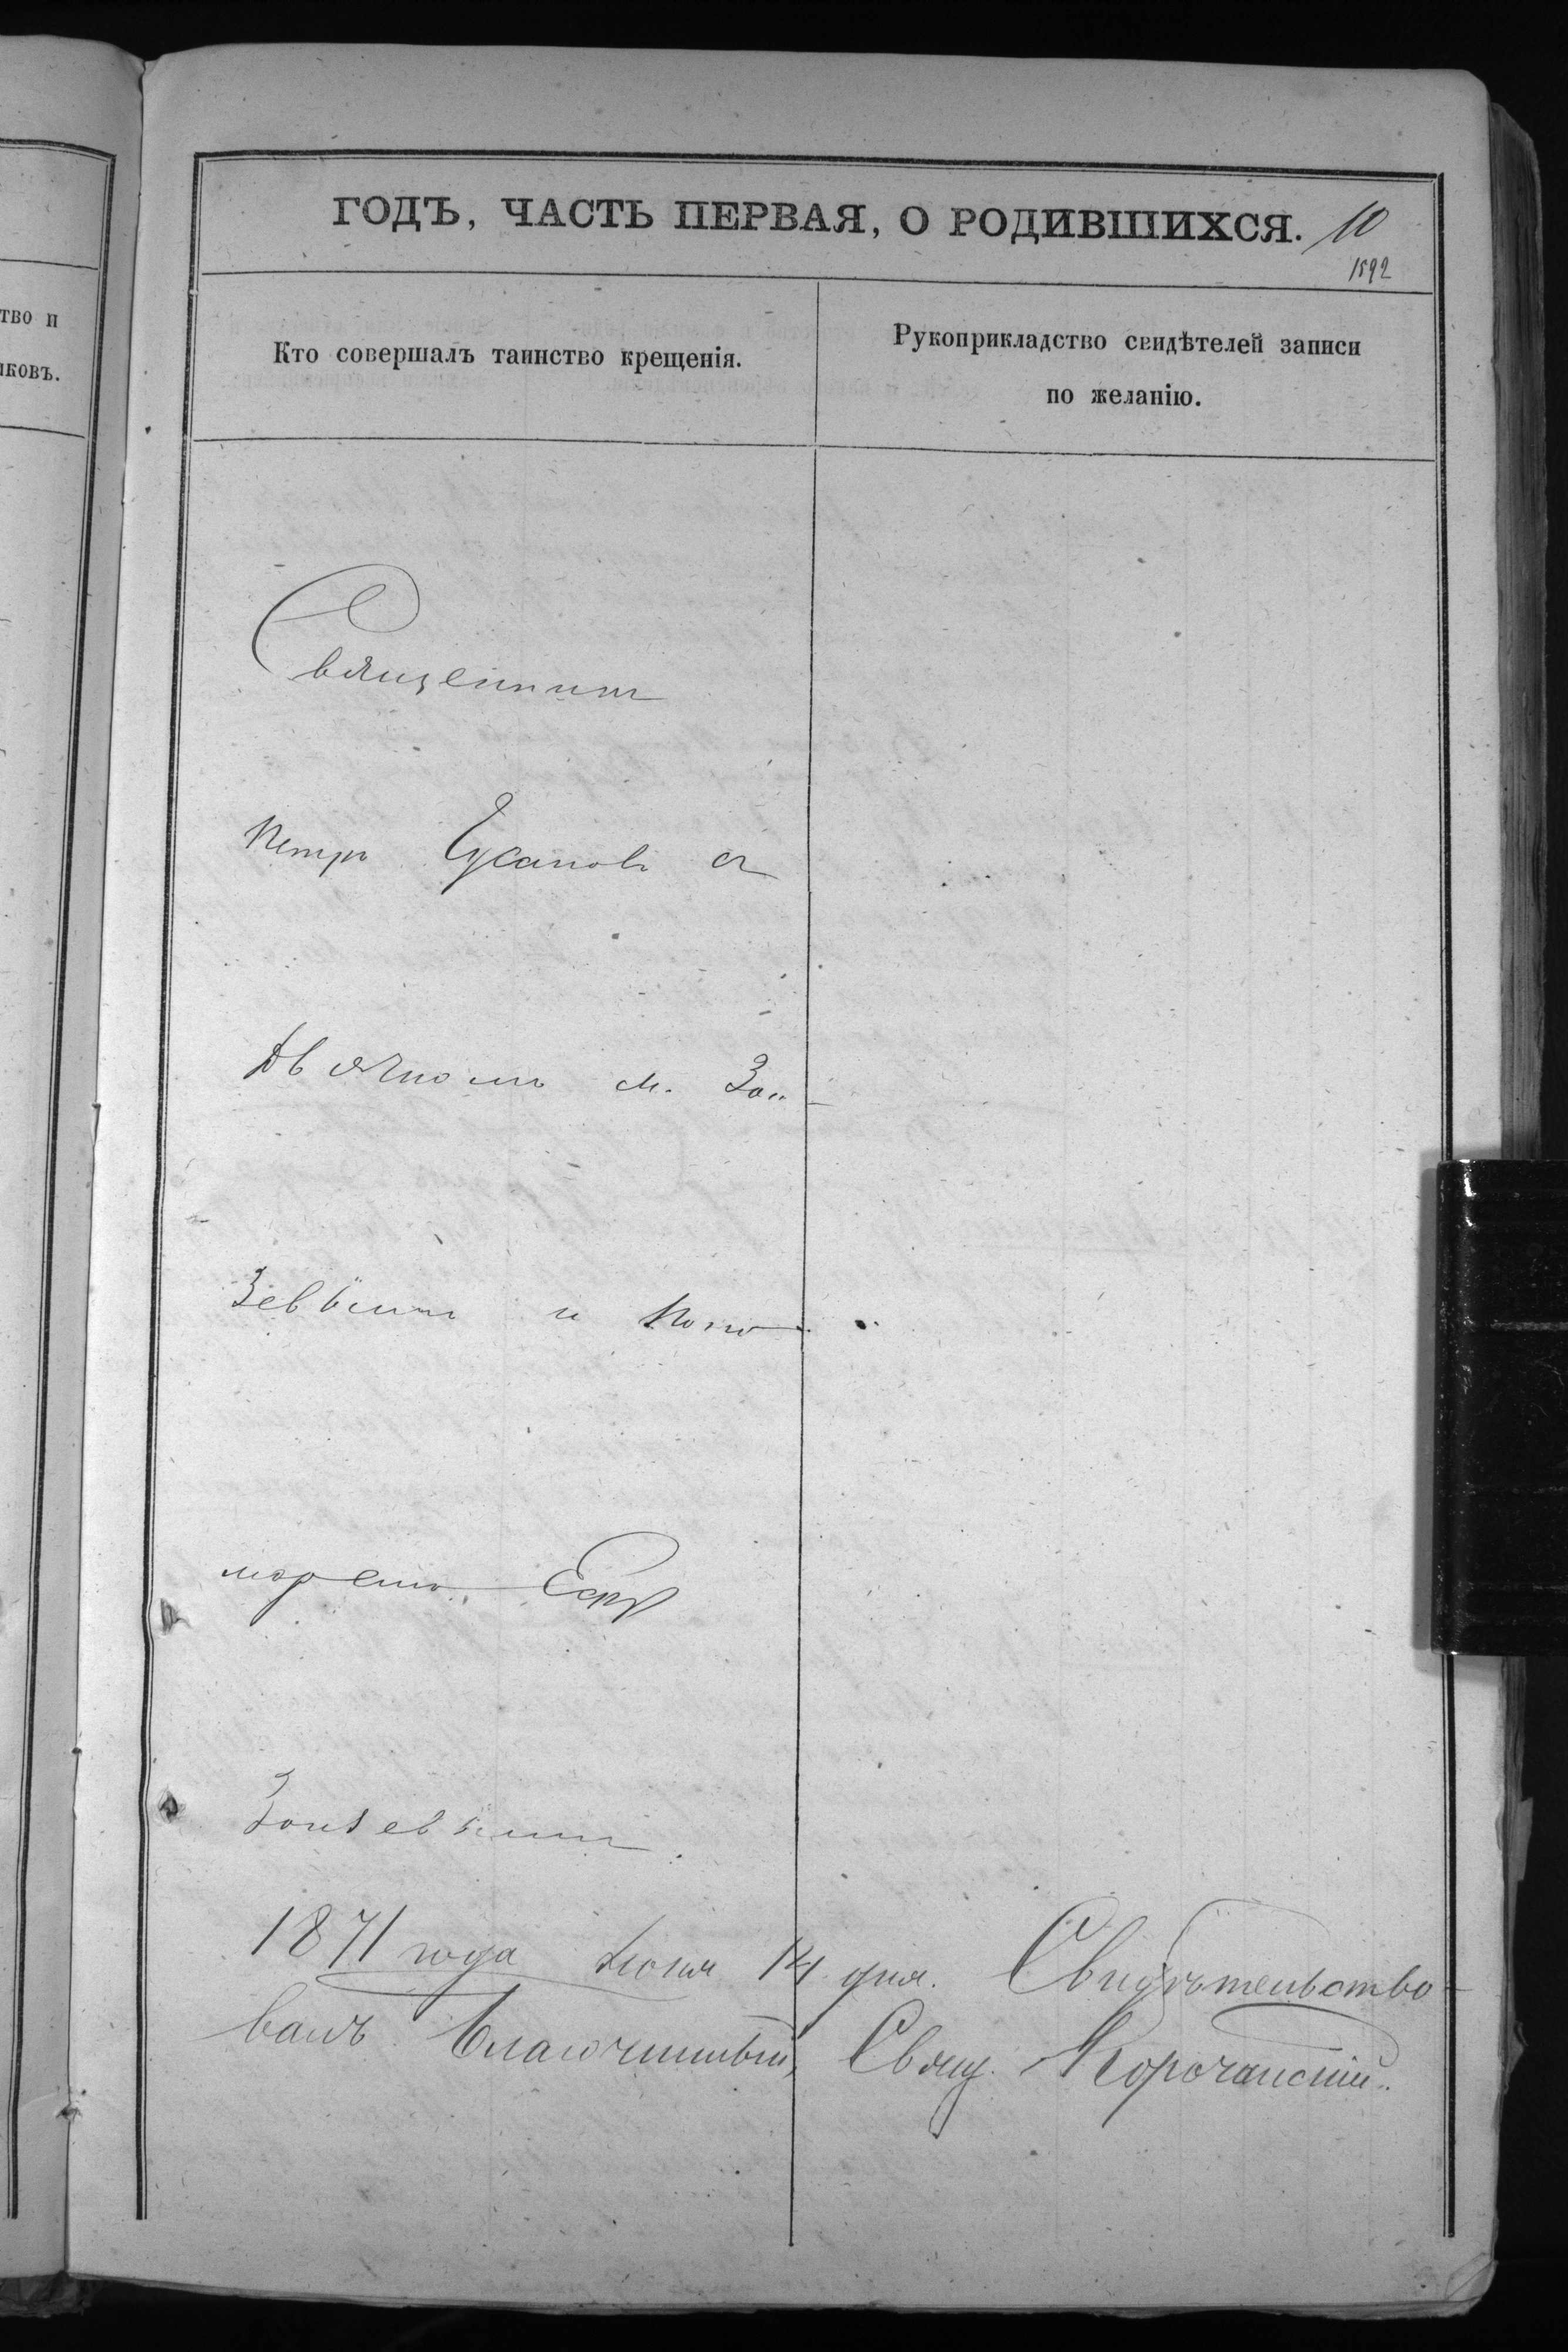 тво и
иковъ.
ГОДЪ, ЧАСТЬ ПЕРВАЯ, О РОДИВШИХСЯ. 10
1592
Кто совершалъ таинство крещенія.
Рукоприкладство свидѣтелей записи
по желанію.
Священникъ
Петръ Гусаковъ съ
Дьячкомъ М. Зон
зевымъ и Поно
маремъ
Зонзевымъ.
1871 года Іюня 14 дня. Свидѣтельство-
валъ Благочинный, Свящ. Корочанскій.